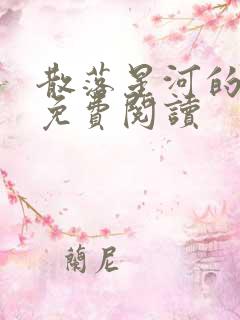 散落星河的
免費閱讀
蘭尼